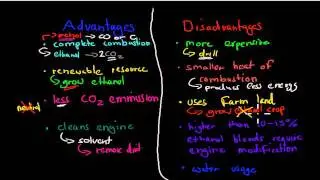 Advantages
complete combustion
ethanol
renewable resource
grow ethanol
neutral
less CO2 emmission
cleans engine
solvent
remove dirt
Disadvantages
more expensive
drill
smaller heat of
combustion
produce less energy
uses Farm land
grow crop
higher than 10-15%
ethanol blends require
engine modification
water usage